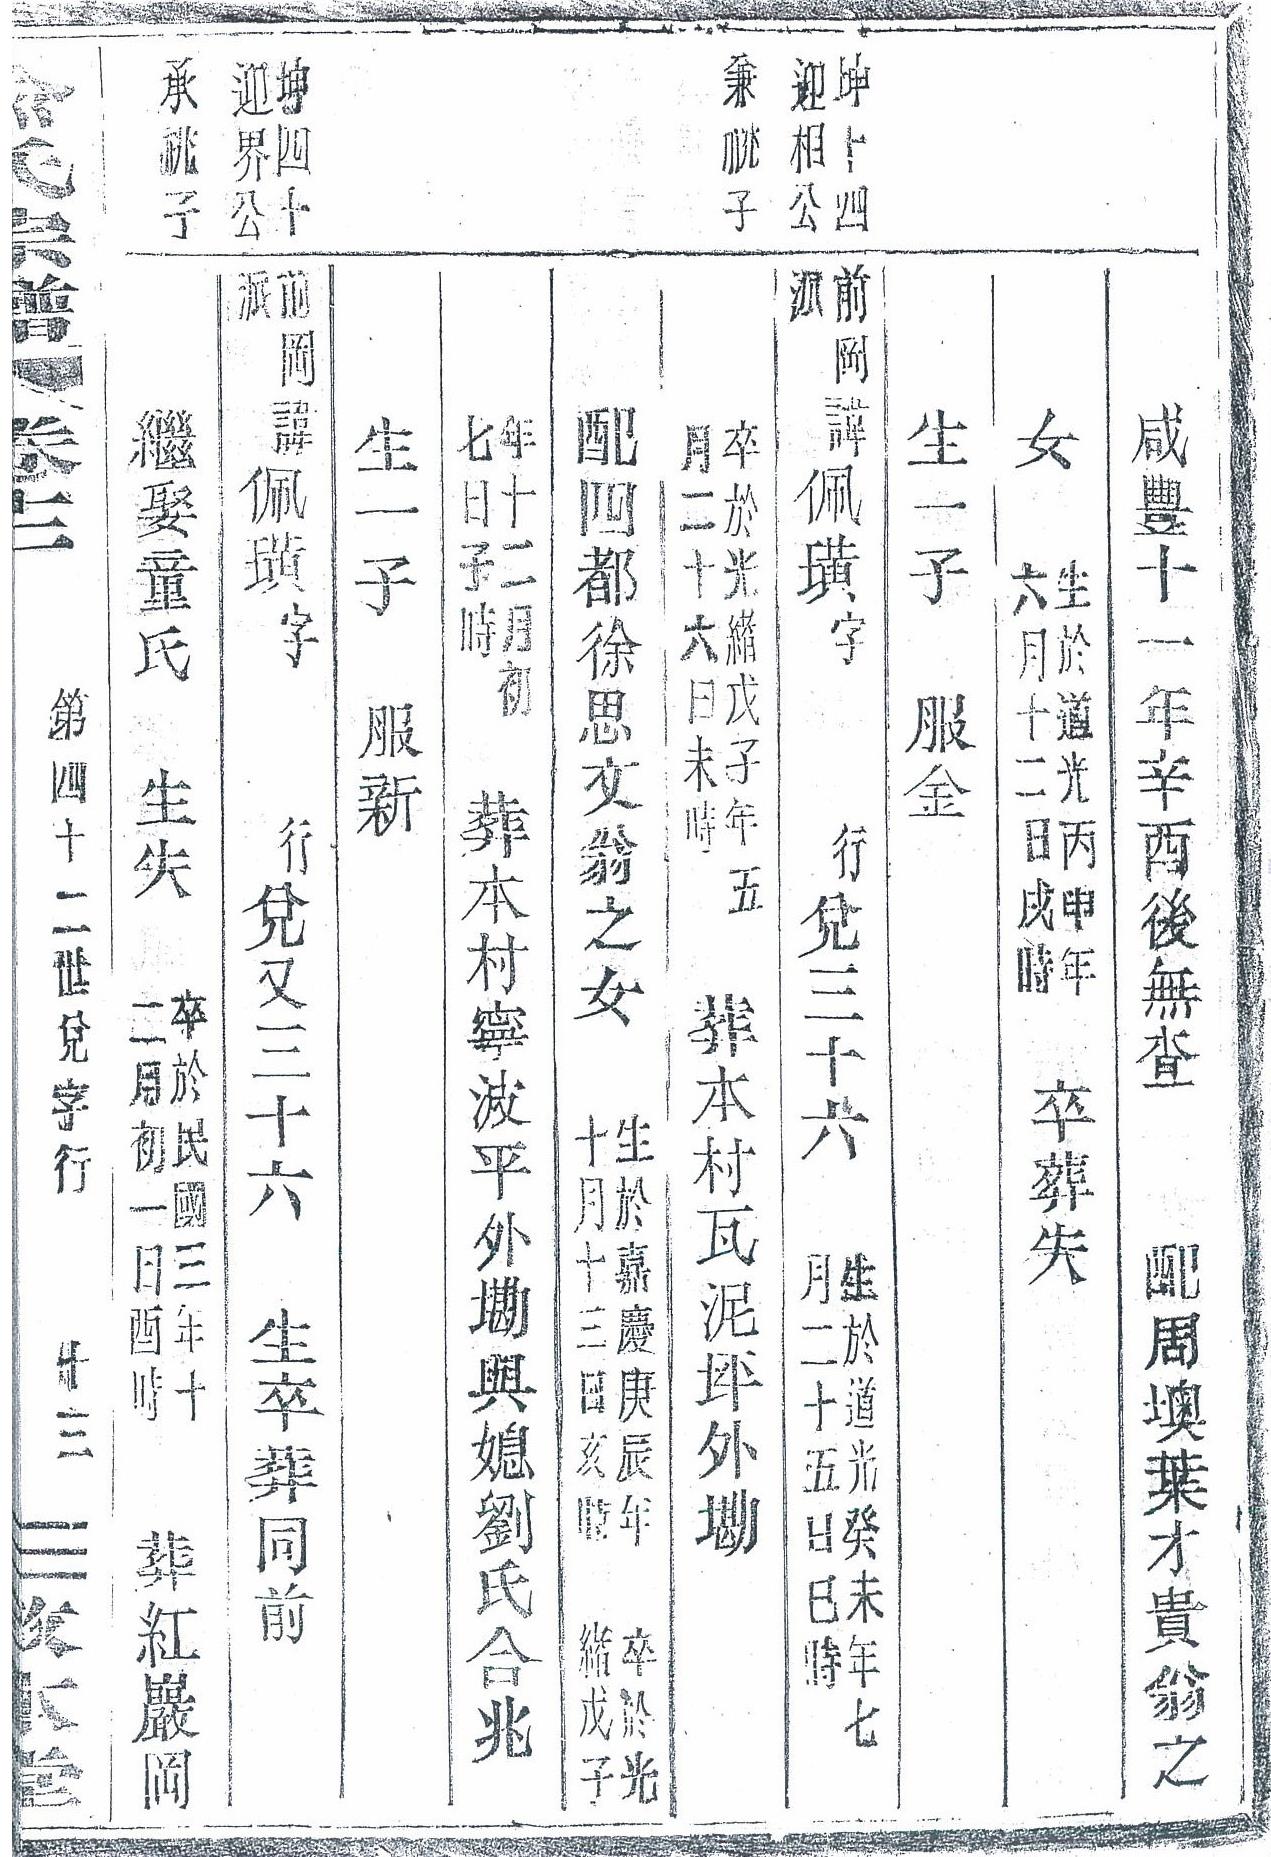 咸豐十一年辛酉後無查　配周墺葉才貴翁之
女　生於道光丙申年
六月十二日戌時　卒葬失
生一子　服金
坤十四
迎相公
兼祧子
前岡
派
諱佩璜字　行兌三十六　生於道光癸未年七
月二十五日巳時
卒於光緒戊子年五
月二十六日未時　葬本村瓦泥坪外墈
配四都徐思文翁之女　生於嘉慶庚辰年
十月十三日亥時　卒於光
緒戊子
年十二月初
七日子時　葬本村寧波平外墈與媳劉氏合兆
生一子　服新
坤四十
迎界公
承祧子
前岡
派
諱佩璜字　行兌又三十六　生卒葬同前
繼娶童氏　生失　卒於民國三年十
二月初一日酉時　葬紅巖岡
氏宗譜　卷
第四十二世兌字行　卄三